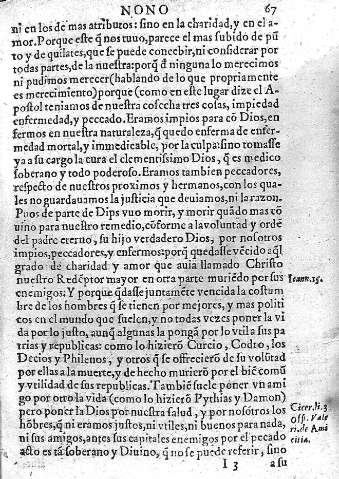 NONO 67
ni en los de mas atributos: sino en la charidad, y en el a-
mor. Porque este q̃ nos tuuo, parece el mas subido de pũ
to y de quilates, que se puede concebir, ni considerar por
todas partes, de la nuestra: porq̃ d̃ ninguna lo merecimos
ni pudimos merecer (hablando de lo que propriamente
es merecimiento) porque (como en este lugar dize el A-
postol teniamos de nuestra cosecha tres cosas, impiedad
enfermedad, y peccado. Eramos impios para cõ Dios, en
fermos en nuestra naturaleza, q̃ quedo enferma de enfer-
medad mortal, y immedicable, por la culpa: sino tomasse
ya a su cargo la cura el clementissimo Dios, q̃ es medico
soberano y todo poderoso. Eramos tambien peccadores,
respecto de nuestros proximos y hermanos, con los qua-
les no guardauamos la justicia que deuiamos, ni la razon.
Pues de parte de Dios vuo morir, y morir quãdo mas cõ
uino para nuestro remedio, cõforme a la voluntad y ordẽ
del padre eterno, su hijo verdadero Dios, por nosotros
impios, peccadores, y enfermos: porq̃ quedasse vẽcido aql̃
grado de charidad y amor que auia llamado Christo
nuestro Redẽptor mayor en otra parte muriẽdo por sus
Ioann.15.
enemigos: Y porque q̃dasse juntamẽte vencida la costum
bre de los hombres q̃ se tienen por mejores, y mas politi
cos en el mundo que suelen, y no todas vezes poner la vi
da por lo justo, aunq̃ algunas la pongã por lo vtil a sus pa
trias y republicas: como lo hizierõ Curcio, Codro, los
Decios y Philenos, y otros q̃ se ofrecierõ de su volũtad
por ellas a la muerte, y de hecho murierõ por el biẽ comũ
y vtilidad de sus republicas. Tambiẽ suele poner vn ami
go por otro la vida (como lo hizierõ Pythias y Damon)
pero poner la Dios por nuestra salud, y por nosotros los
Cicer. li. 3
hõbres, q̃ ni eramos justos, ni vtiles, ni buenos para nada,
Offi. Vale
ni sus amigos, antes sus capitales enemigos por el pecado
ri. de Ami
citia.
asto es tã soberano y Diuino, q̃ no se puede referir, sino
I 3 a su